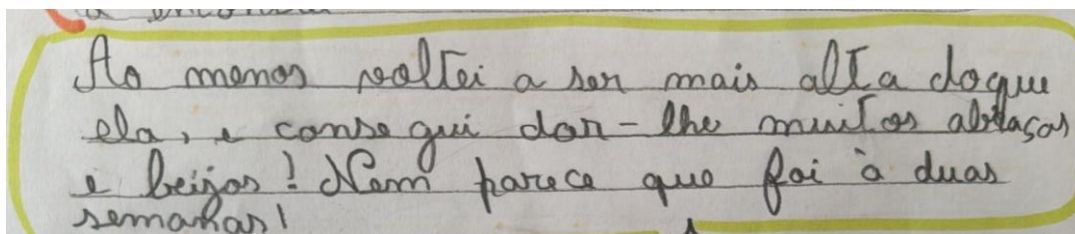 Ao menos voltei a ser mais alta doque
ela, e consegui dar-lhe muitos abraços
e beijos! Nem parece que foi à duas
semanas!